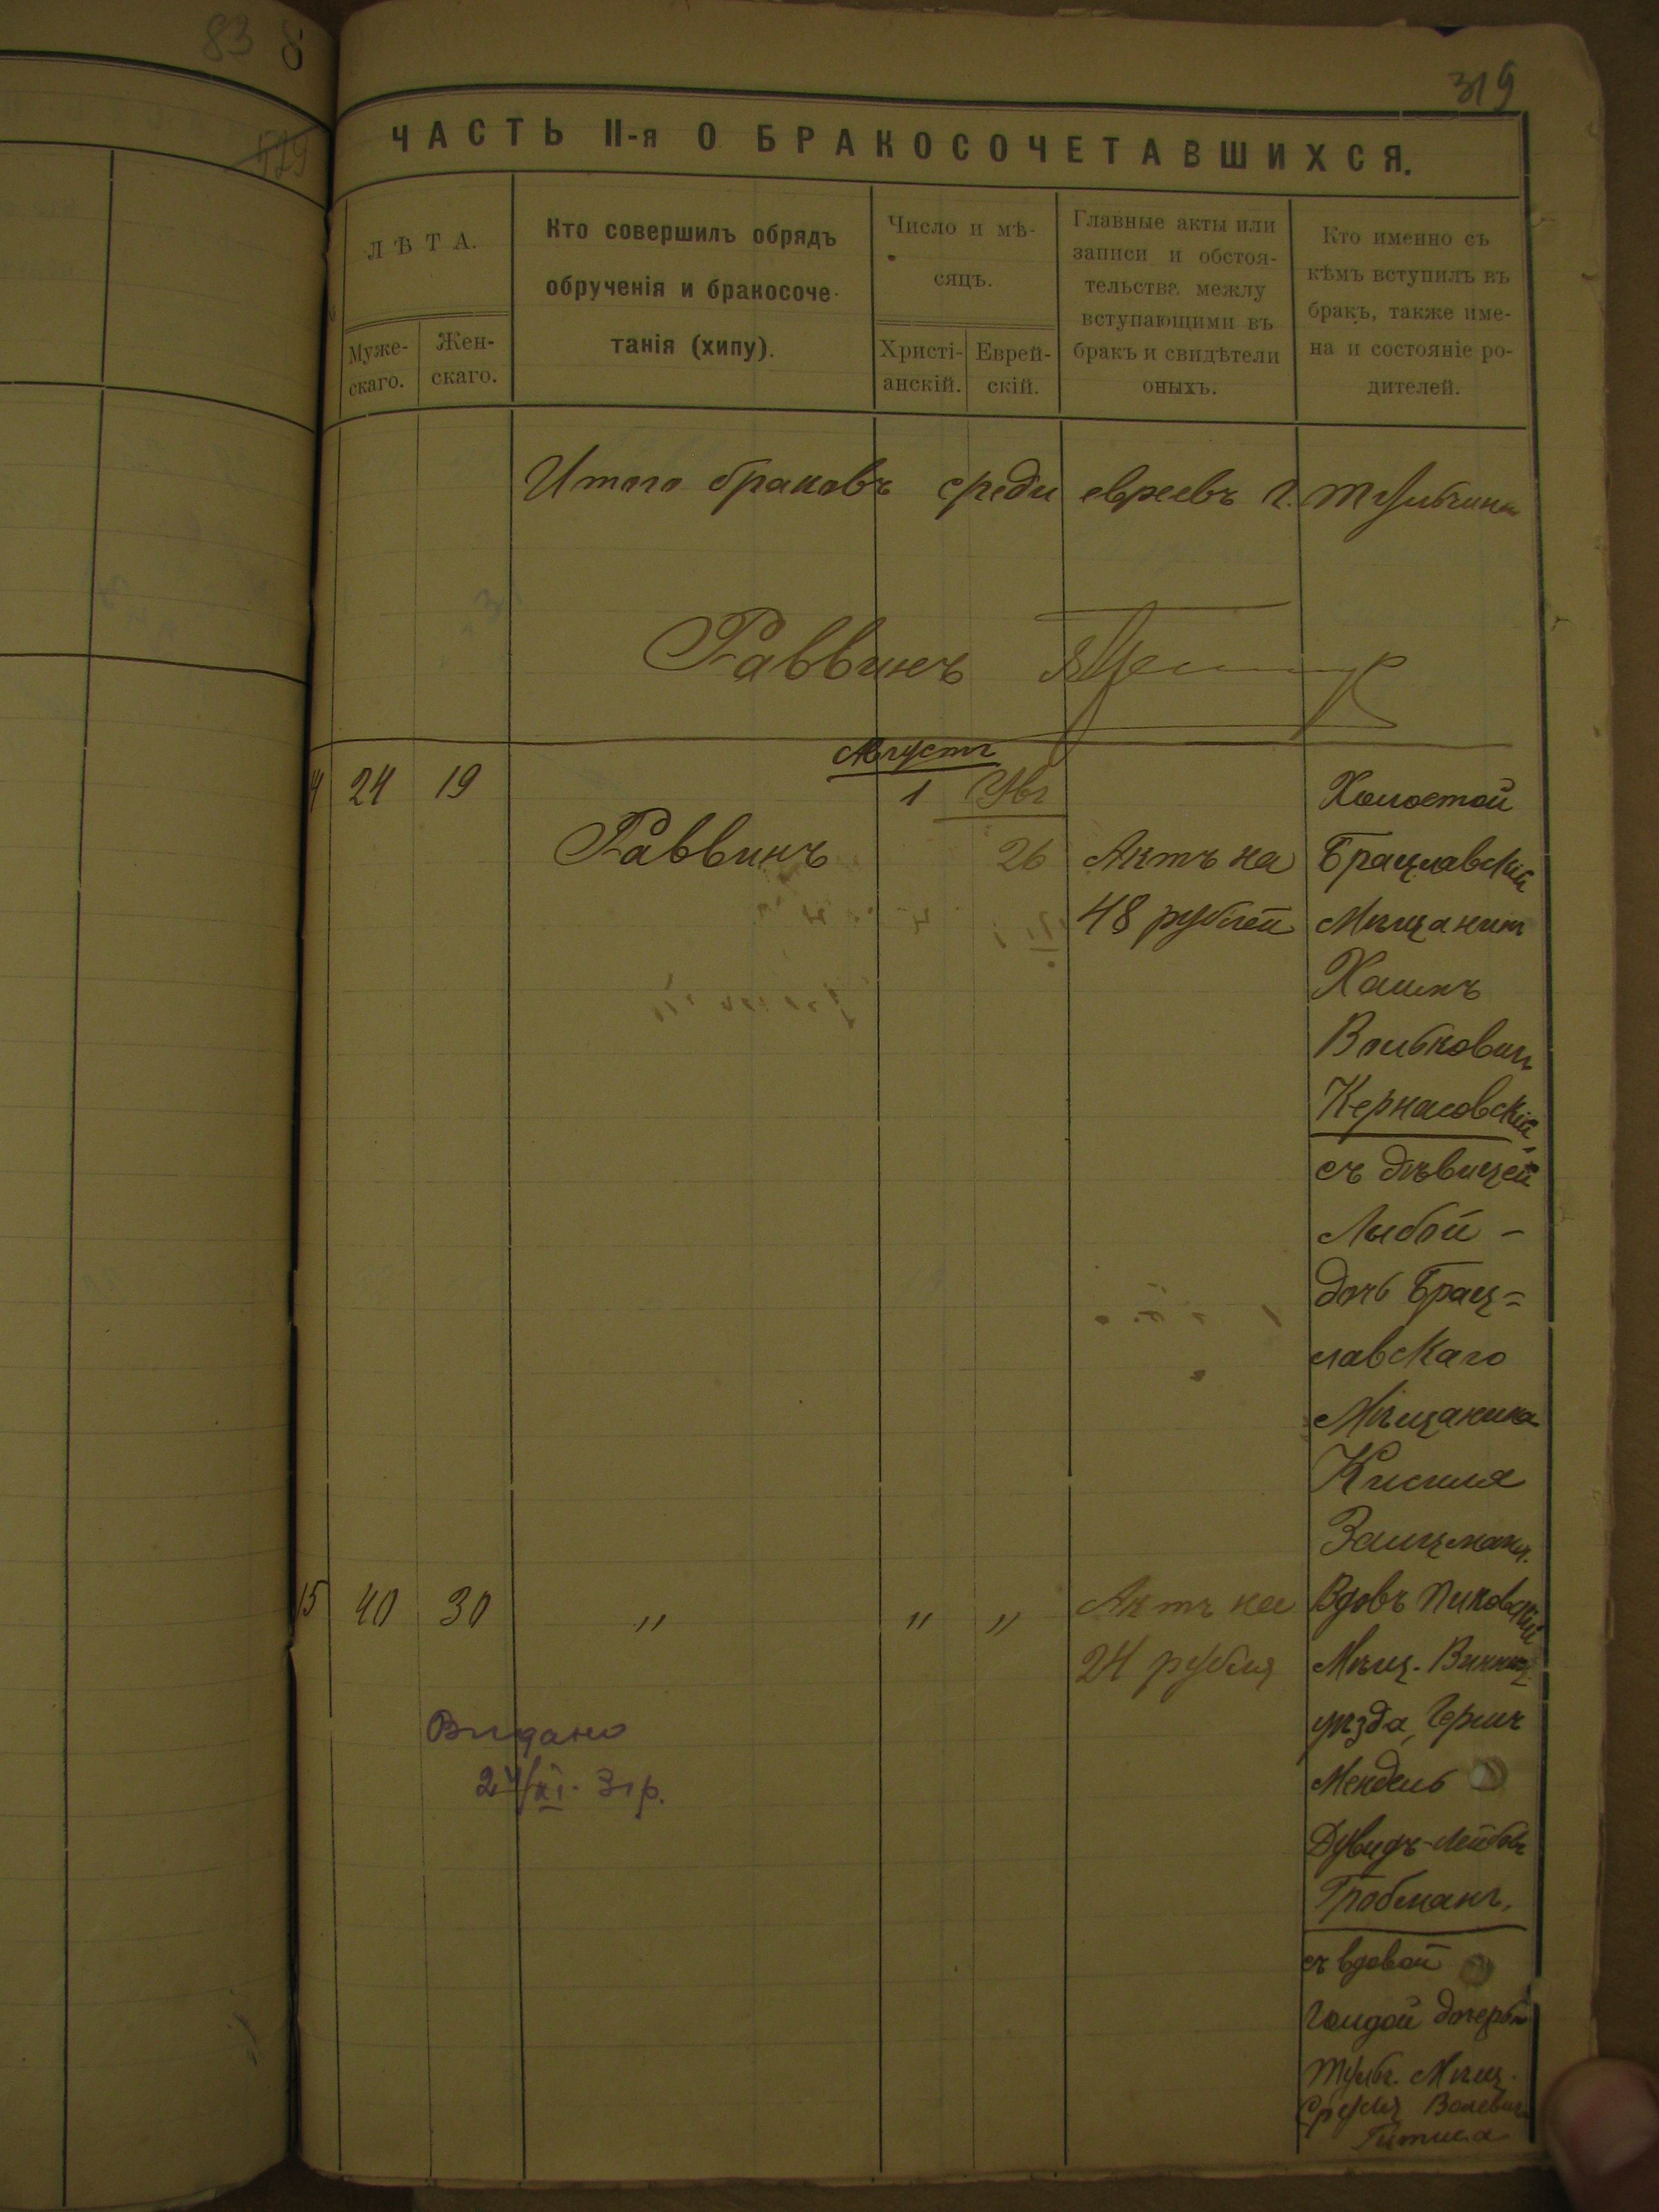 83
319
529
ЧАСТЬ II-я О БРАКОСОЧЕТАВШИХСЯ.
ЛѢТА.
Муже-
скаго.
Жен-
скаго.
Кто совершилъ обрядъ
обрученія и бракосоче-
танія (хипу).
Число и мѣ-
сяцъ.
Христі-
анскій.
Еврей-
скій.
Главные акты или
записи и обстоя-
тельства межлу
вступающими въ
бракъ и свидѣтели
оныхъ.
Кто именно съ
кѣмъ вступилъ въ
бракъ, также име-
на и состояніе ро-
дителей.
Итого браковъ среди евреевъ г. Тульчина
Раввинъ
Августъ
24 19 1
Раввинъ
26
Актъ на
48 рублей
Холостой
Брацлавскій
Мѣщанинъ
Хаимъ
Волькович
Кернасовскій,
съ дѣвицей
дочь Брац=
лавскаго
Мѣщанина
Кисиля
Зальцмана.
15 40 30 " " "
Актъ на
24 рубля
Видано
24/XI. 31 р.
Вдовъ Пиковскій
Мѣщ. Винниц.
уѣзда, Гершъ
Мендель
Дувидъ-Лейбов
Гробманъ,
съ вдовой
Голдой дочерью
Тульч. Мѣщ.